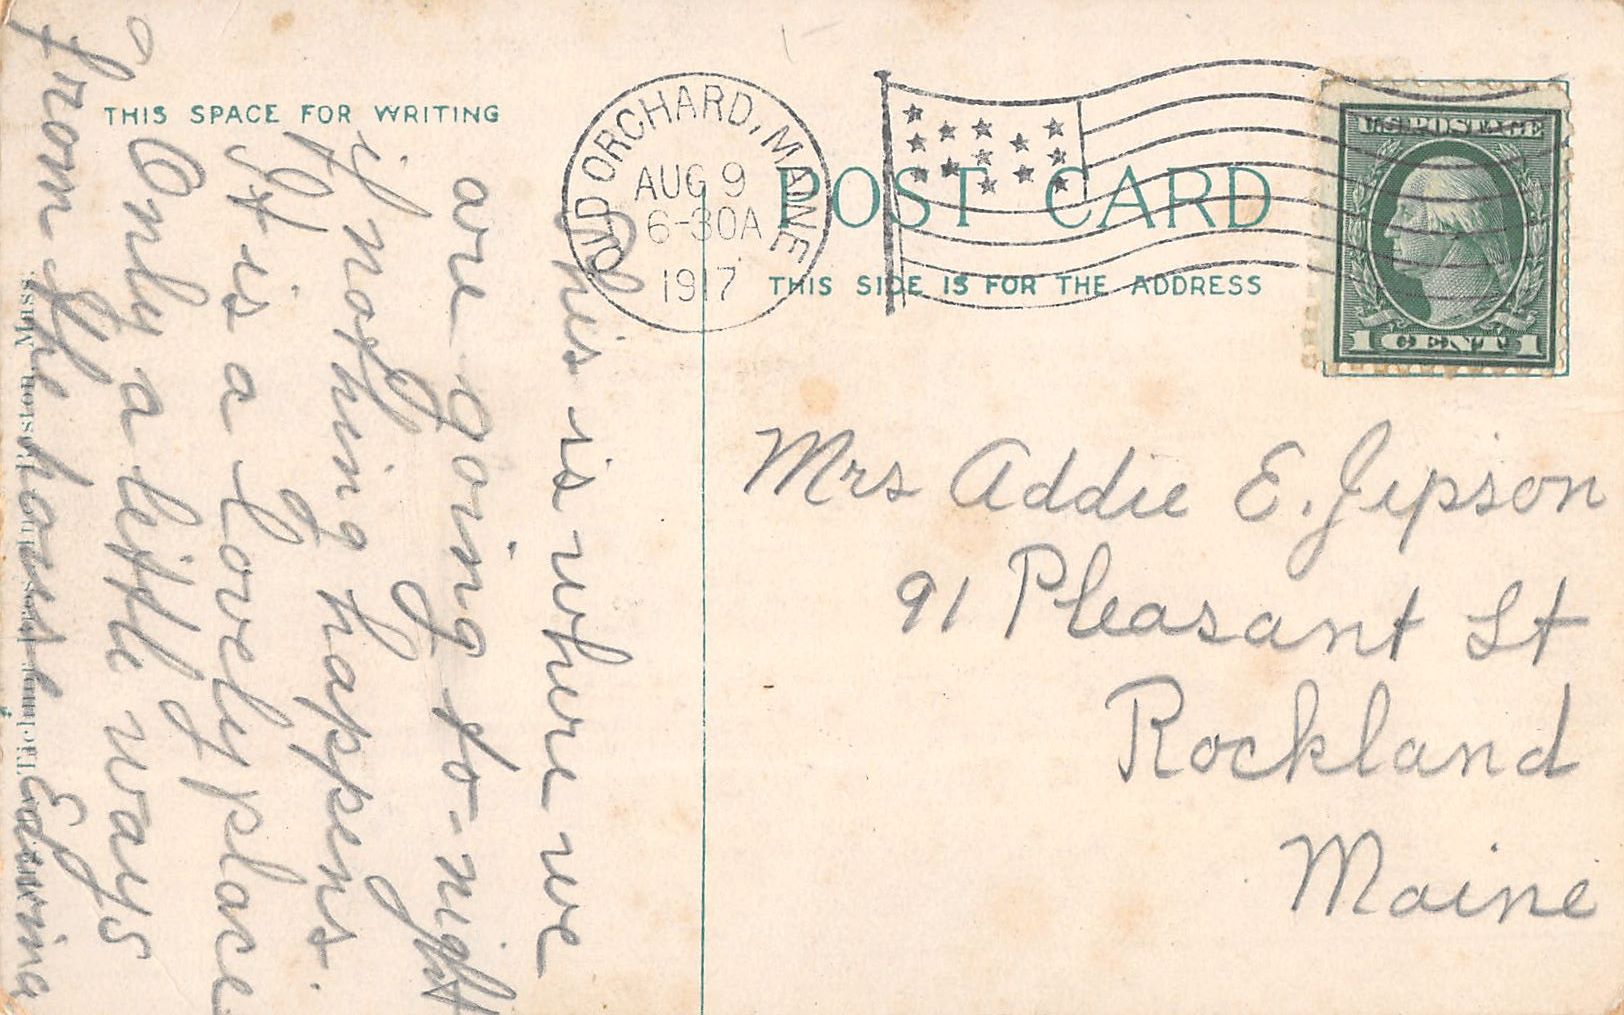 THIS SPACE FOR WRITING
This is where we
are going to-night
if nothing happens.
It is a lovely place
Only a little ways
from the house Edwina
OLD ORCHARD, MAINE
AUG 9
6-30A
1917
POST CARD
THIS SIDE IS FOR THE ADDRESS
U.S. POSTAGE
1 CENT 1
Mrs Addie E. Jipson
91 Pleasant St
Rockland
Maine
Boston, Mass.